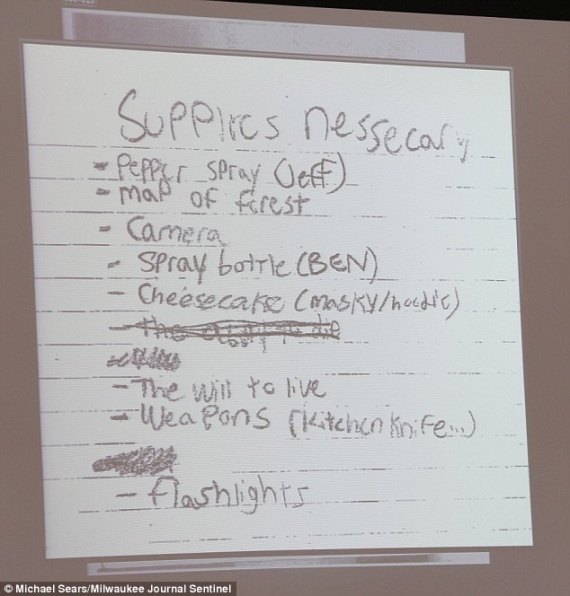 Supplies nessecary
- Pepper spray (Jeff)
- map of forest
- Camera
- Spray bottle (BEN)
- Cheesecake (masky/hoodie)
- The will to live
- Weapons (kitchen knife...)
- flashlights
© Michael Sears/Milwaukee Journal Sentinel